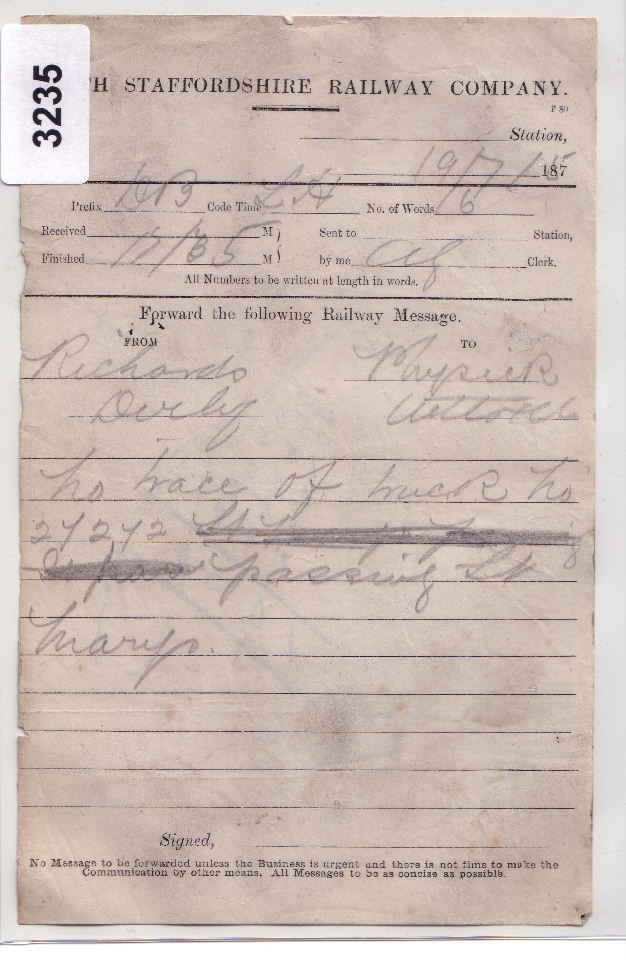 3235
TH STAFFORDSHIRE RAILWAY COMPANY.
F 80
Station,
19/7/ 187
Prefix DB Code Time No. of Words 6
Received M Sent to Station,
Finished M by me Clerk.
All Numbers to be written at length in words.
Forward the following Railway Message.
FROM TO
Richards Physick
Derby
No trace of truck No
27272
passing St
Marys.
Signed,
No Message to be forwarded unless the Business is urgent and there is not time to make the
Communication by other means. All Messages to be as concise as possible.